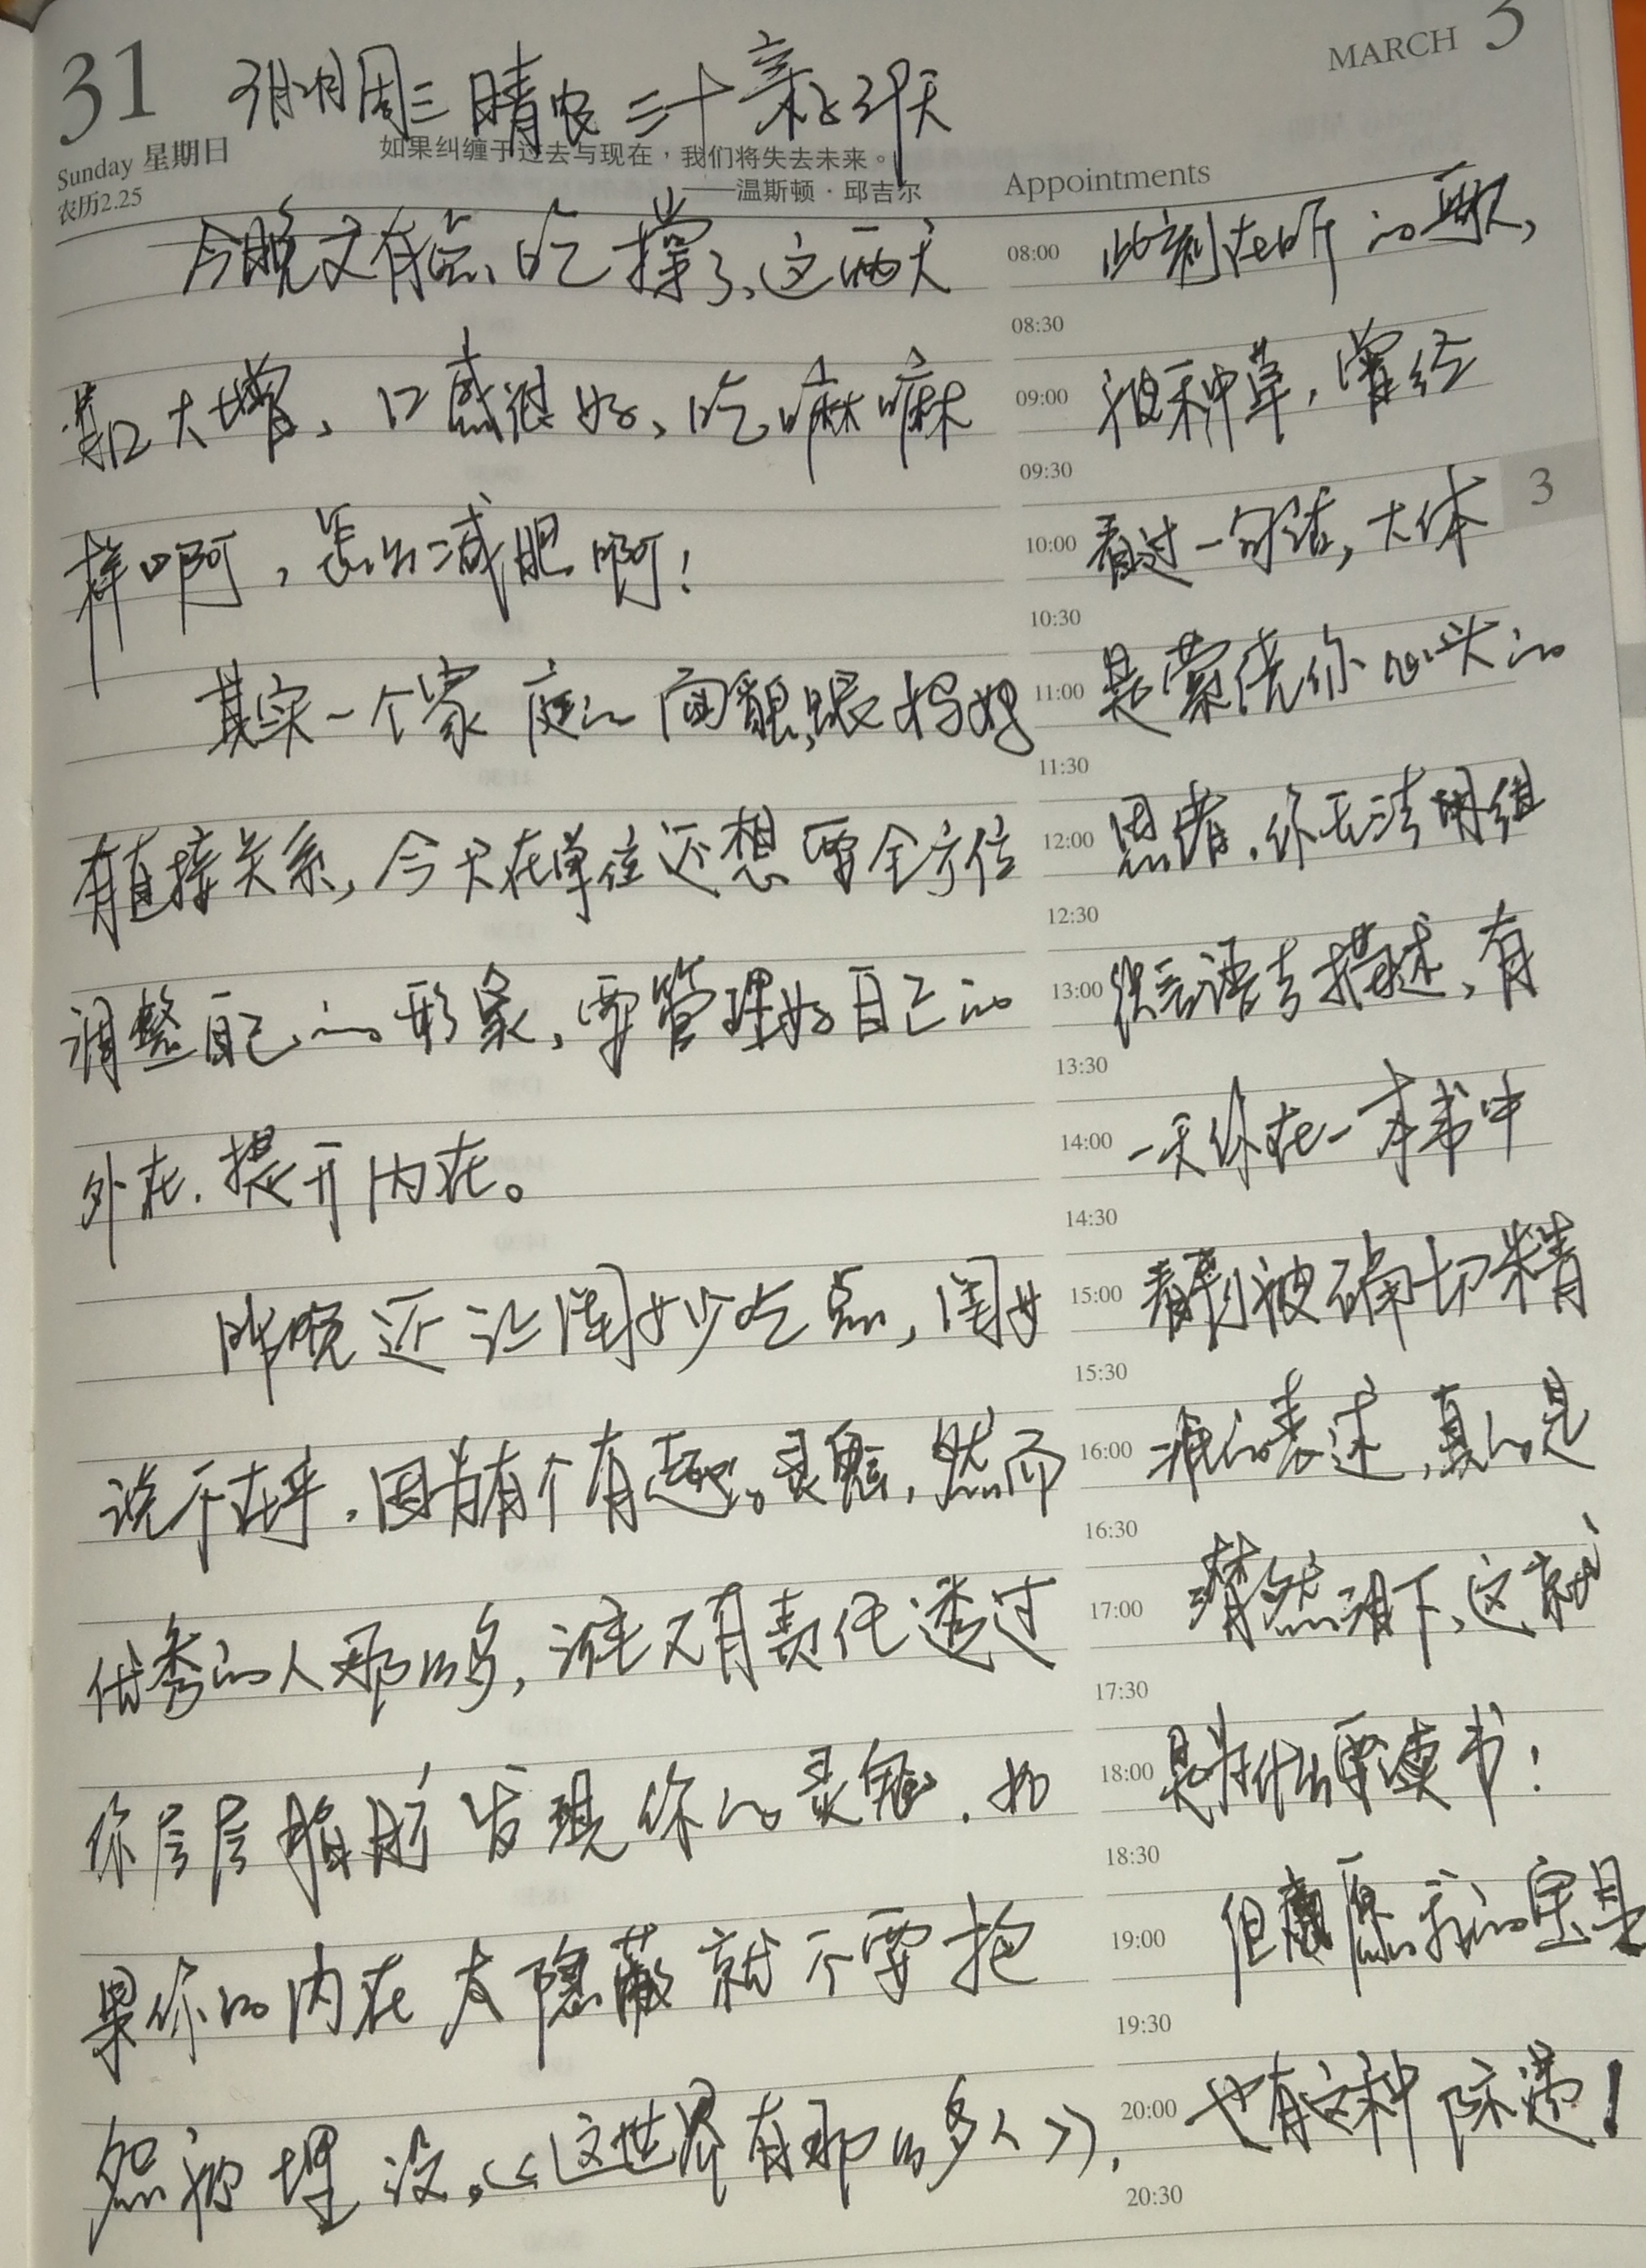 31
MARCH 3
周三 晴 农二十 亲子 天
Sunday 星期日
农历2.25
如果纠缠于过去与现在，我们将失去未来。
——温斯顿·邱吉尔
Appointments
今晚又有点吃撑了、这两天
胃口大增、口感很好、吃嘛嘛
样啊，怎么减肥啊！
其实一个家庭的面貌跟妈妈
有直接关系，今天在单位还想要全方位
调整自己的形象，要管理好自己的
外在.提升内在。
昨晚还让闺女少吃点，闺女
说不在乎，因为有个有趣的灵魂，然而
优秀的人那么多，谁又有责任透过
你层层脂肪发现你的灵魂.如
果你的内在太隐蔽就不要抱
怨被埋没。《这世界有那么多人》，
08:00 此刻在听的歌，
08:30
09:00 被种草，曾经
09:30
10:00 看过一句话，大体
3
10:30
11:00 是萦绕你心头的
11:30
12:00 思绪，你无法用组
12:30
13:00 织言语去描述，有
13:30
14:00 一天你在一本书中
14:30
15:00 看到被确切精
15:30
16:00 准的表述，真的是
16:30
17:00 潸然泪下、这就
17:30
18:00 是为什么要读书！
18:30
19:00 但愿我的宝贝
19:30
20:00 也有这种际遇！
20:30